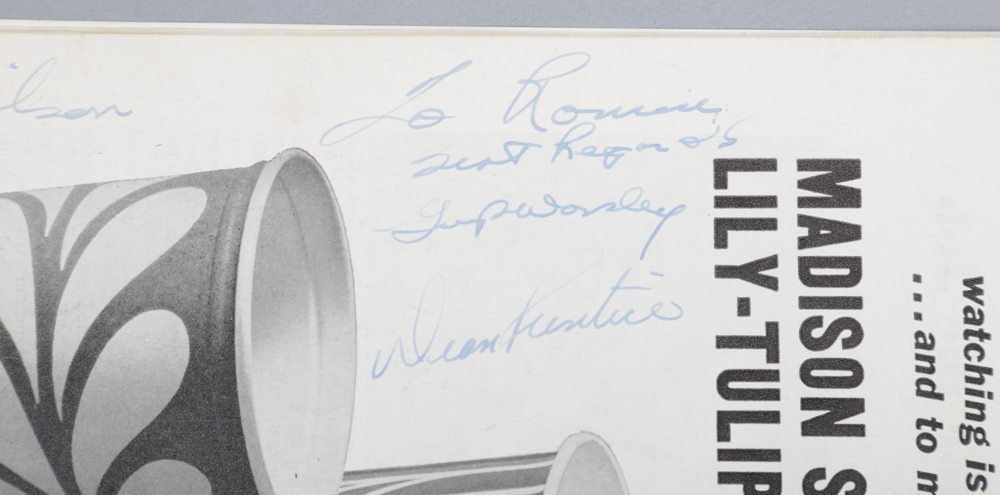 ilson
To Ronnie
Best Regards
Gump Worsley
Dean Prentice
MADISON S
LILY-TULIP
watching is
...and to m